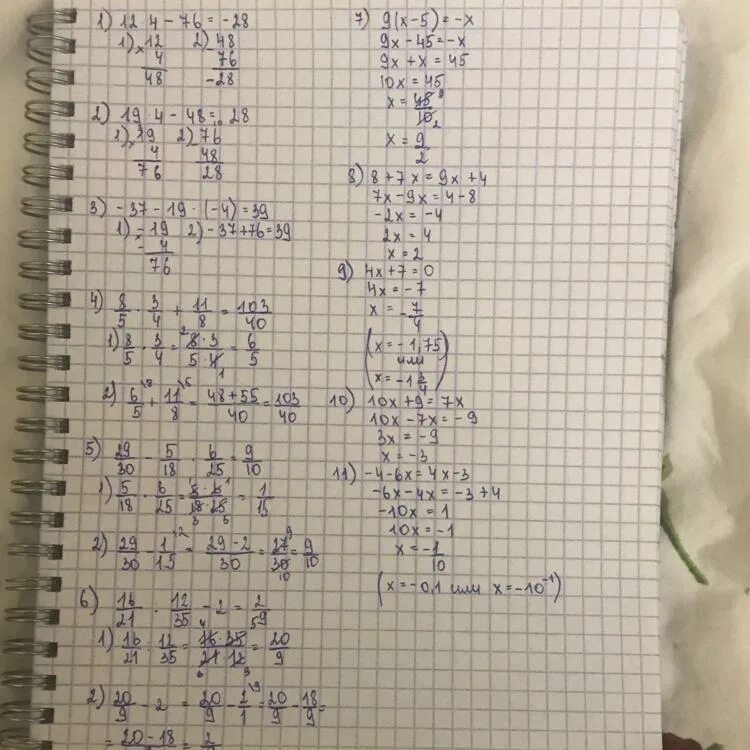 1) 12 · 4 - 76 = -28
1) × 12
4
48
2) 48
76
-28
2) 19 · 4 - 48 = 28
1) × 19
4
76
2) 76
48
28
3) -37 - 19 · (-4) = 39
1) - 19
- 4
76
2) -37 + 76 = 39
4) 8/5 · 3/4 + 11/8 = 103/40
1) 8/5 · 3/4 = 8 · 3/5 · 4 = 6/5
2) 6/5 + 11/8 = 48+55/40 = 103/40
5) 29/30 - 5/18 · 6/25 = 9/10
1) 5/18 · 6/25 = 5 · 6/18 · 25 = 1/15
2) 29/30 - 1/15 = 29-2/30 = 27/30 = 9/10
6) 16/21 : 12/35 - 2 = 2/9
1) 16/21 : 12/35 = 16 · 35/21 · 12 = 20/9
2) 20/9 - 2 = 20/9 - 2/1 = 20/9 - 18/9 =
= 20-18 = 2
7) 9(x-5) = -x
9x - 45 = -x
9x + x = 45
10x = 45
x = 45/10
x = 9/2
8) 8 + 7x = 9x + 4
7x - 9x = 4 - 8
-2x = -4
2x = 4
x = 2
9) 4x + 7 = 0
4x = -7
x = -7/4
(x = -1,75
или
x = -1 3/4)
10) 10x + 9 = 7x
10x - 7x = -9
3x = -9
x = -3
11) -4 - 6x = 4x - 3
-6x - 4x = -3 + 4
-10x = 1
10x = -1
x = -1/10
(x = -0,1 или x = -10⁻¹)